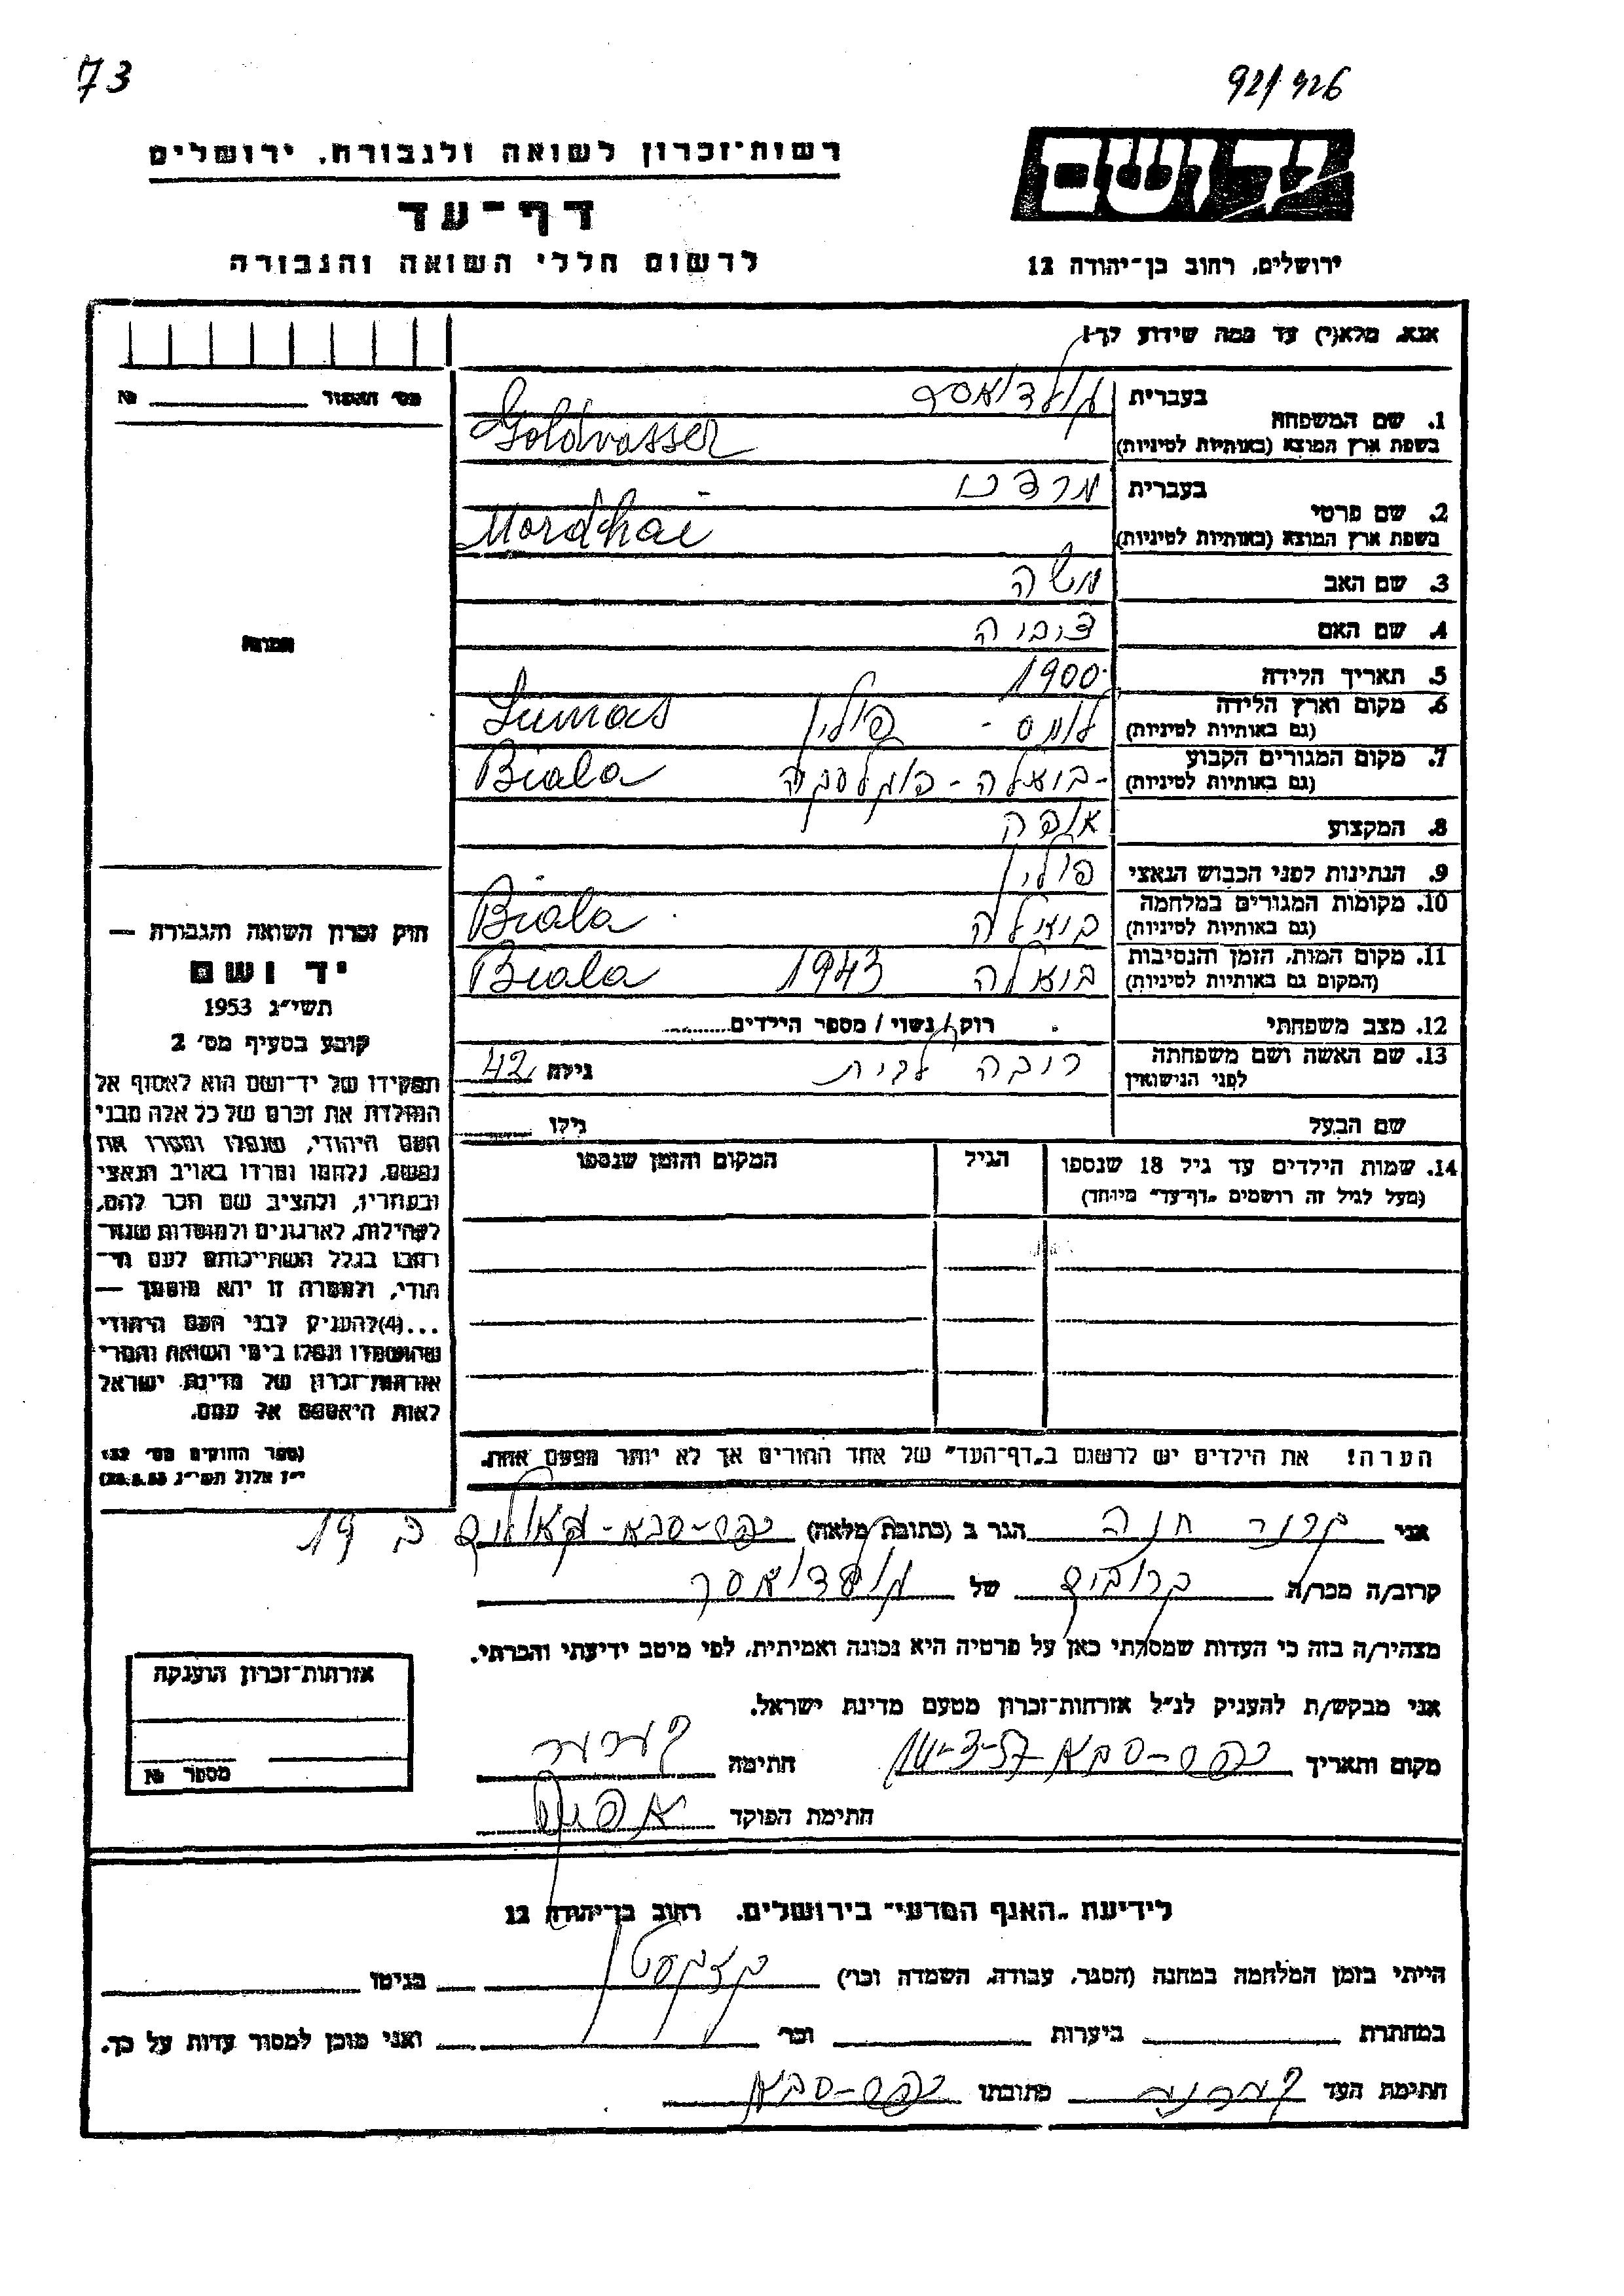 73
92/426
רשות־זכרון לשואה ולגבורה, ירושלים
דף־עד
לרשום חללי השואה והגבורה
יד ושם
ירושלים, רחוב בן־יהודה 12
אנא, מלא(י) עד כמה שידוע לך!
מס' האפור № ________
1. שם המשפחה בעברית גולדואסר
בשפת ארץ המוצא (באותיות לטיניות) Goldvasser
2. שם פרטי בעברית מרדכי
בשפת ארץ המוצא (באותיות לטיניות) Mordhai
3. שם האב משה
4. שם האם צוביה
5. תאריך הלידה 1900
6. מקום וארץ הלידה (גם באותיות לטיניות) לומס - פולין Lumas
7. מקום המגורים הקבוע (גם באותיות לטיניות) ביאלה - פודלסקה Biala
8. המקצוע אופה
9. הנתינות לפני הכבוש הנאצי פולין
10. מקומות המגורים במלחמה (גם באותיות לטיניות) ביאלה Biala
11. מקום המות, הזמן והנסיבות (המקום גם באותיות לטיניות) ביאלה 1943 Biala
12. מצב משפחתי רוק/נשוי/מספר הילדים........
13. שם האשה ושם משפחתה לפני הנישואין ריבה גילה 42
שם הבעל גילו ____
14. שמות הילדים עד גיל 18 שנספו
(מעל לגיל זה רושמים „דף־עד" מיוחד)
הגיל
המקום והזמן שנספו
תמונה
חוק זכרון השואה והגבורה —
יד ושם
תשי״ג 1953
קובע בסעיף מס' 2
תפקידו של יד־ושם הוא לאסוף אל
המולדת את זכרם של כל אלה מבני
העם היהודי, שנפלו ומסרו את
נפשם, נלחמו ומרדו באויב הנאצי
ובעוזריו, ולהציב שם וזכר להם,
לקהילות, לארגונים ולמוסדות שנח־
רבו בגלל השתייכותם לעם הי־
הודי, ולמטרה זו יהא מוסמך —
...(4) להעניק לבני העם היהודי
שהושמדו ונפלו בימי השואה והמרי
אזרחות־זכרון של מדינת ישראל
לאות היאספם אל עמם.
(ספר החוקים מס' 132
י״ז אלול תשי״ג 28.8.53)
הערה! את הילדים יש לרשום ב„דף־העד" של אחד ההורים אך לא יותר מפעם אחת.
אני חנה הגר ב (כתובת מלאה) כפר-סבא- 19
קרוב/ה מכר/ה קרובים של גולדואסר
מצהיר/ה בזה כי העדות שמסרתי כאן על פרטיה היא נכונה ואמיתית, לפי מיטב ידיעתי והכרתי.
אני מבקש/ת להעניק לנ״ל אזרחות־זכרון מטעם מדינת ישראל.
מקום ותאריך כפר-סבא 14-3-57 חתימה
חתימת הפוקד
אזרחות־זכרון הוענקה
מספר №
לידיעת „האגף המדעי" בירושלים, רחוב בן־יהודה 12
הייתי בזמן המלחמה במחנה (הסגר, עבודה, השמדה וכו') בגיטו
במחתרת ביערות וכו' ואני מוכן למסור עדות על כך.
חתימת העד כתובתו כפר-סבא